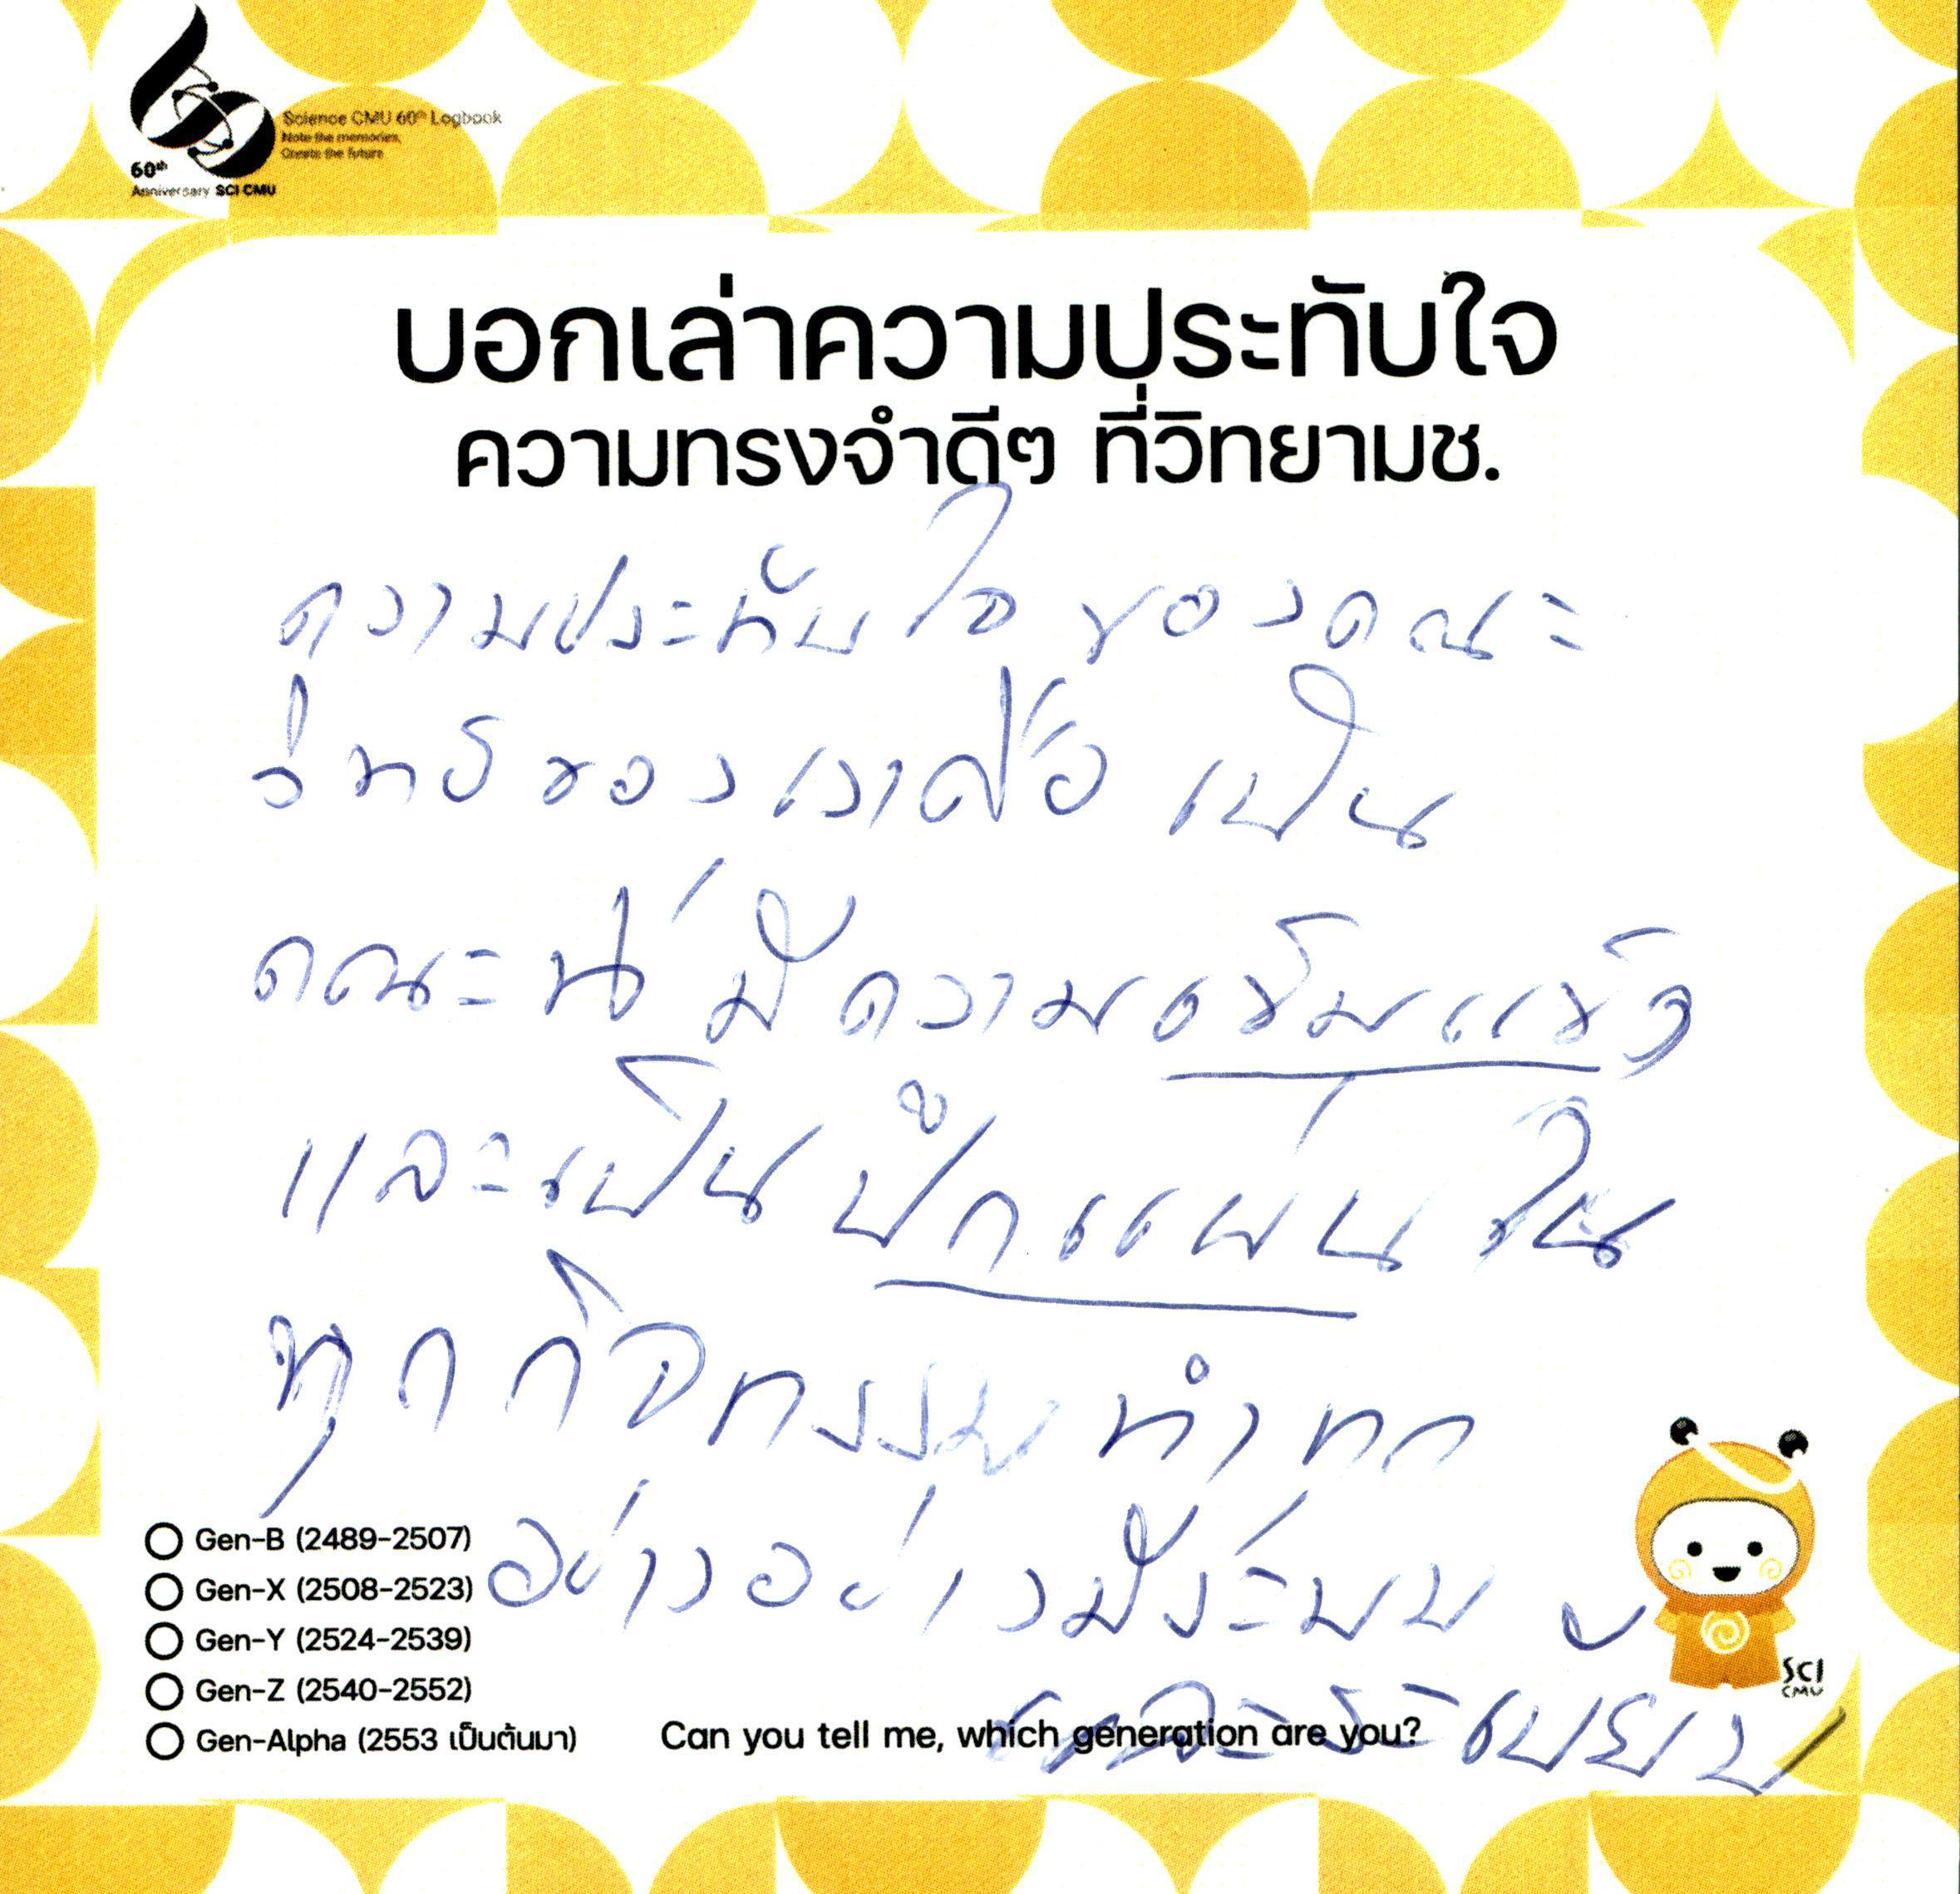 Science CMU 60th Logbook
Note the memories,
Create the future
60th
Anniversary SCI CMU
บอกเล่าความประทับใจ
ความทรงจำดีๆ ที่วิทยามช.
ความประทับใจของคณะ
วิทย์ของเราคือ เป็น
คณะที่มีความเข้มแข็ง
และเป็นปึกแผ่นใน
ทุกกิจกรรม ทำทุก
อย่างอย่างมีระบบ
ระเบียบ
Gen-B (2489-2507)
Gen-X (2508-2523)
Gen-Y (2524-2539)
Gen-Z (2540-2552)
Gen-Alpha (2553 เป็นต้นมา)
Can you tell me, which generation are you?
SCI
CMU